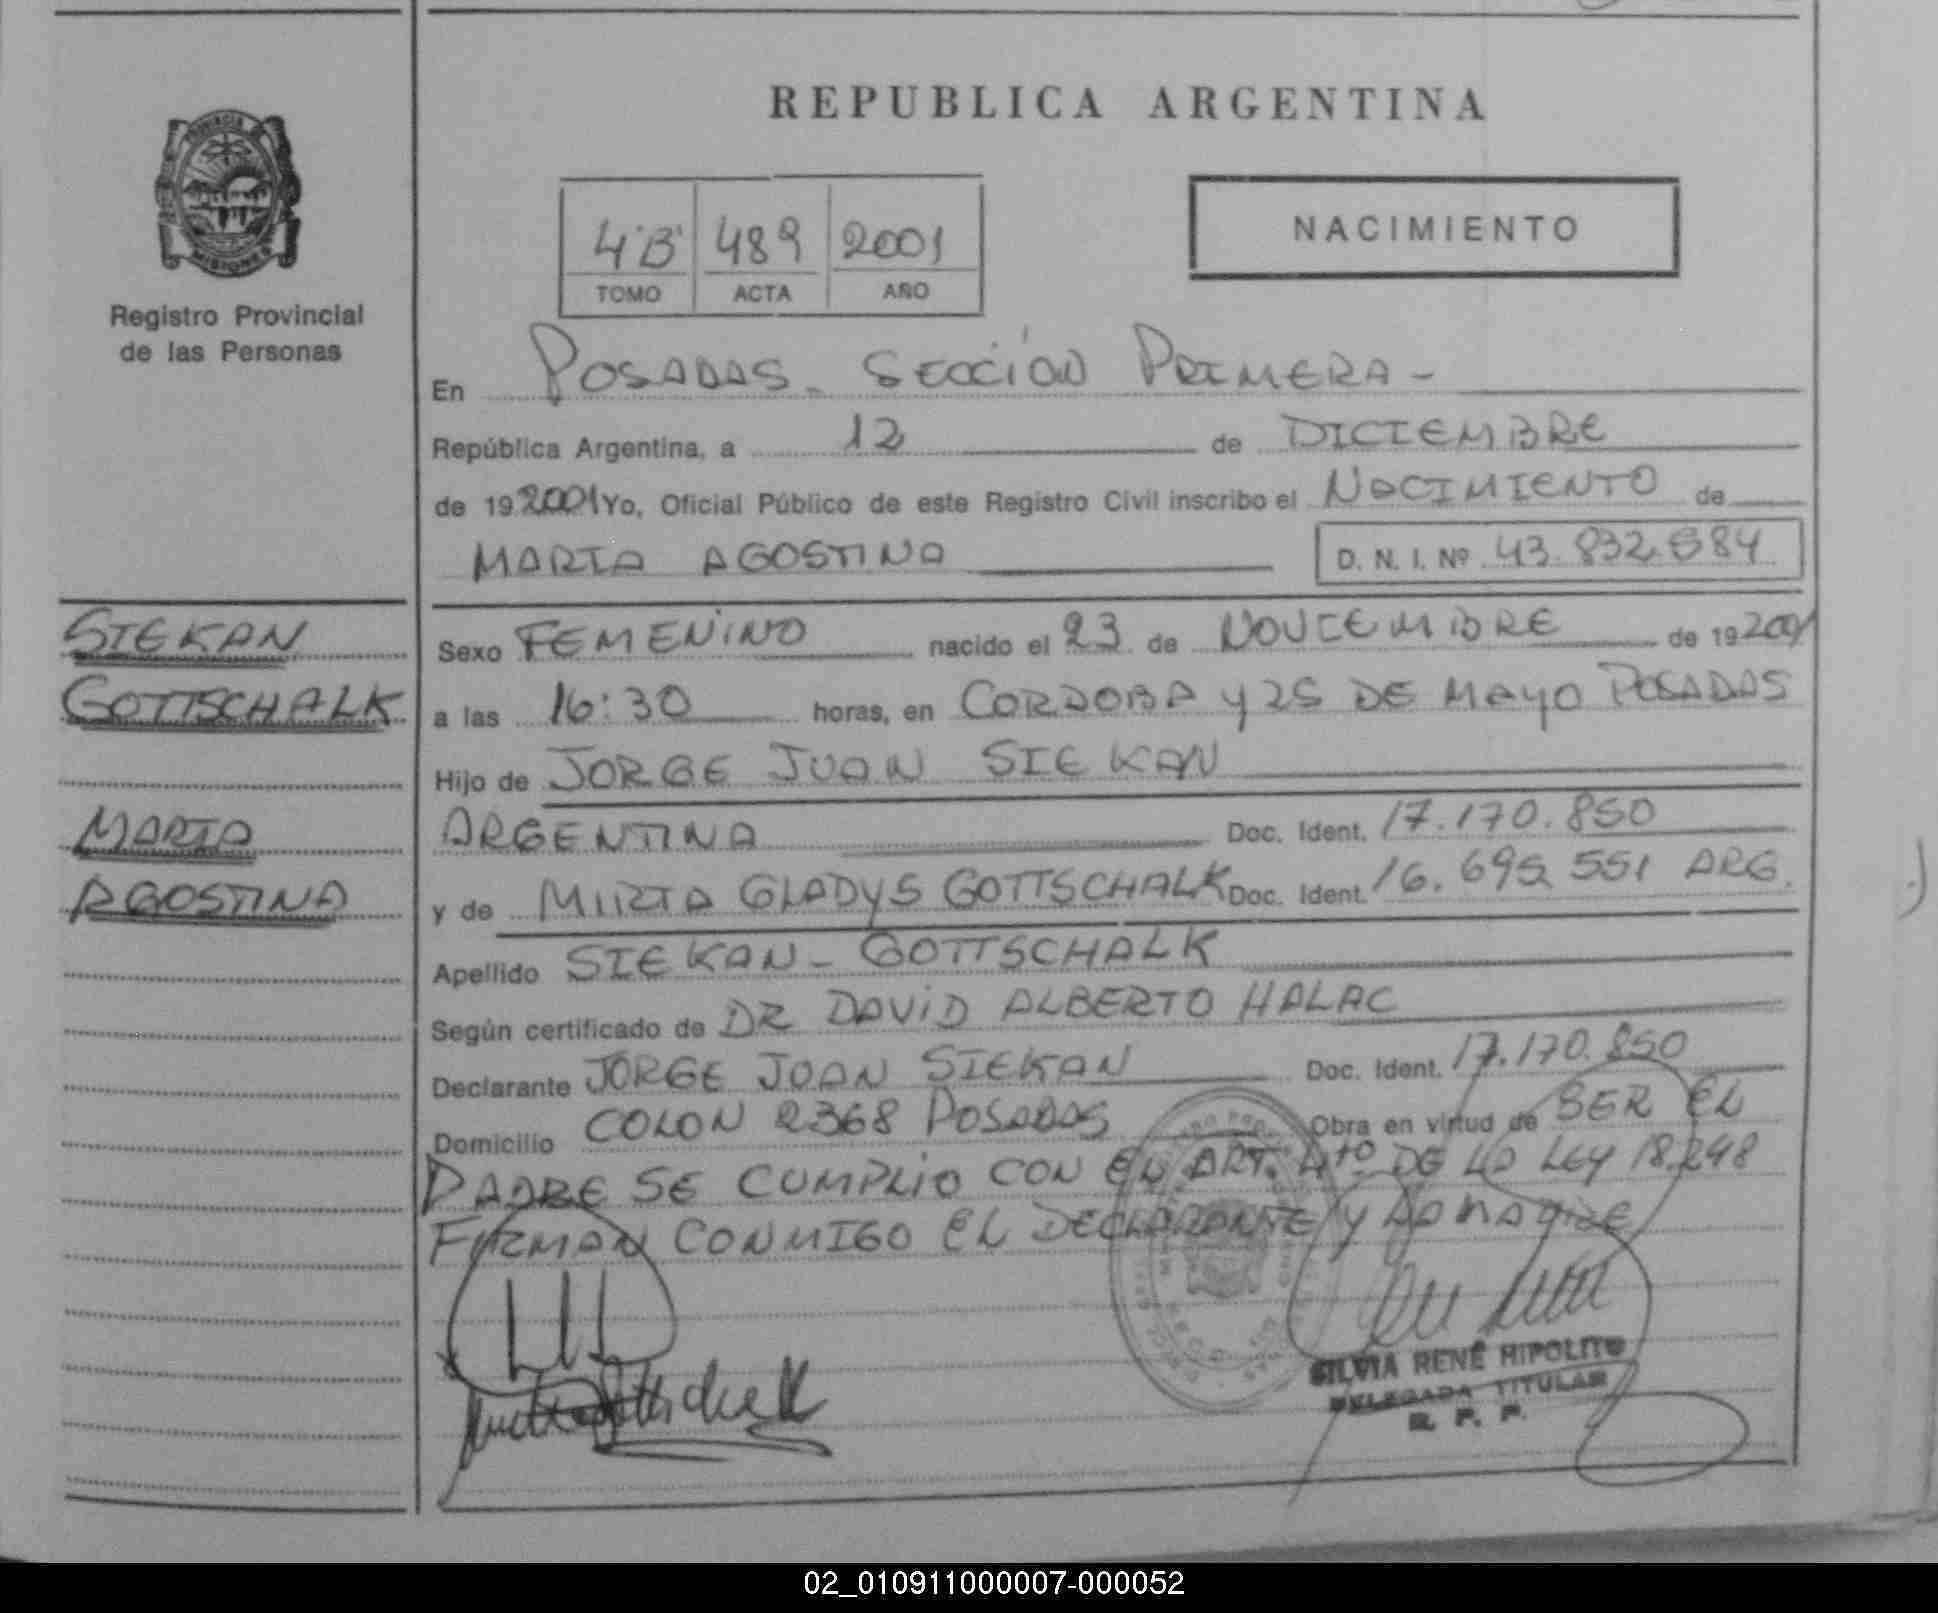 REPUBLICA ARGENTINA
PROVINCIA DE
MISIONES
Registro Provincial
de las Personas
4"B" 489 2001
TOMO ACTA AÑO
NACIMIENTO
En POSADAS - SECCIÓN PRIMERA -
República Argentina, a 12 de DICIEMBRE
de 19 2001 Yo, Oficial Público de este Registro Civil inscribo el NACIMIENTO de
MARIA AGOSTINA D. N. I. Nº 43.832.584
SIEKAN
GOTTSCHALK
MARIA
AGOSTINA
Sexo FEMENINO nacido el 23 de NOVIEMBRE de 19 2001
a las 16:30 horas, en CORDOBA y 25 DE MAYO POSADAS
Hijo de JORGE JUAN SIEKAN
ARGENTINA Doc. Ident. 17.170.850
y de MIRTA GLADYS GOTTSCHALK Doc. Ident. 16.695.551 ARG.
Apellido SIEKAN - GOTTSCHALK
Según certificado de DR DAVID ALBERTO HALAC
Declarante JORGE JUAN SIEKAN Doc. Ident. 17.170.850
Domicilio COLON 2368 POSADAS Obra en virtud de SER EL
PADRE SE CUMPLIO CON EL ART. 4to DE LA LEY 18.248
FIRMAN CONMIGO EL DECLARANTE Y LA MADRE
SILVIA RENÉ HIPOLITO
DELEGADA TITULAR
R. P. P.
02_010911000007-000052